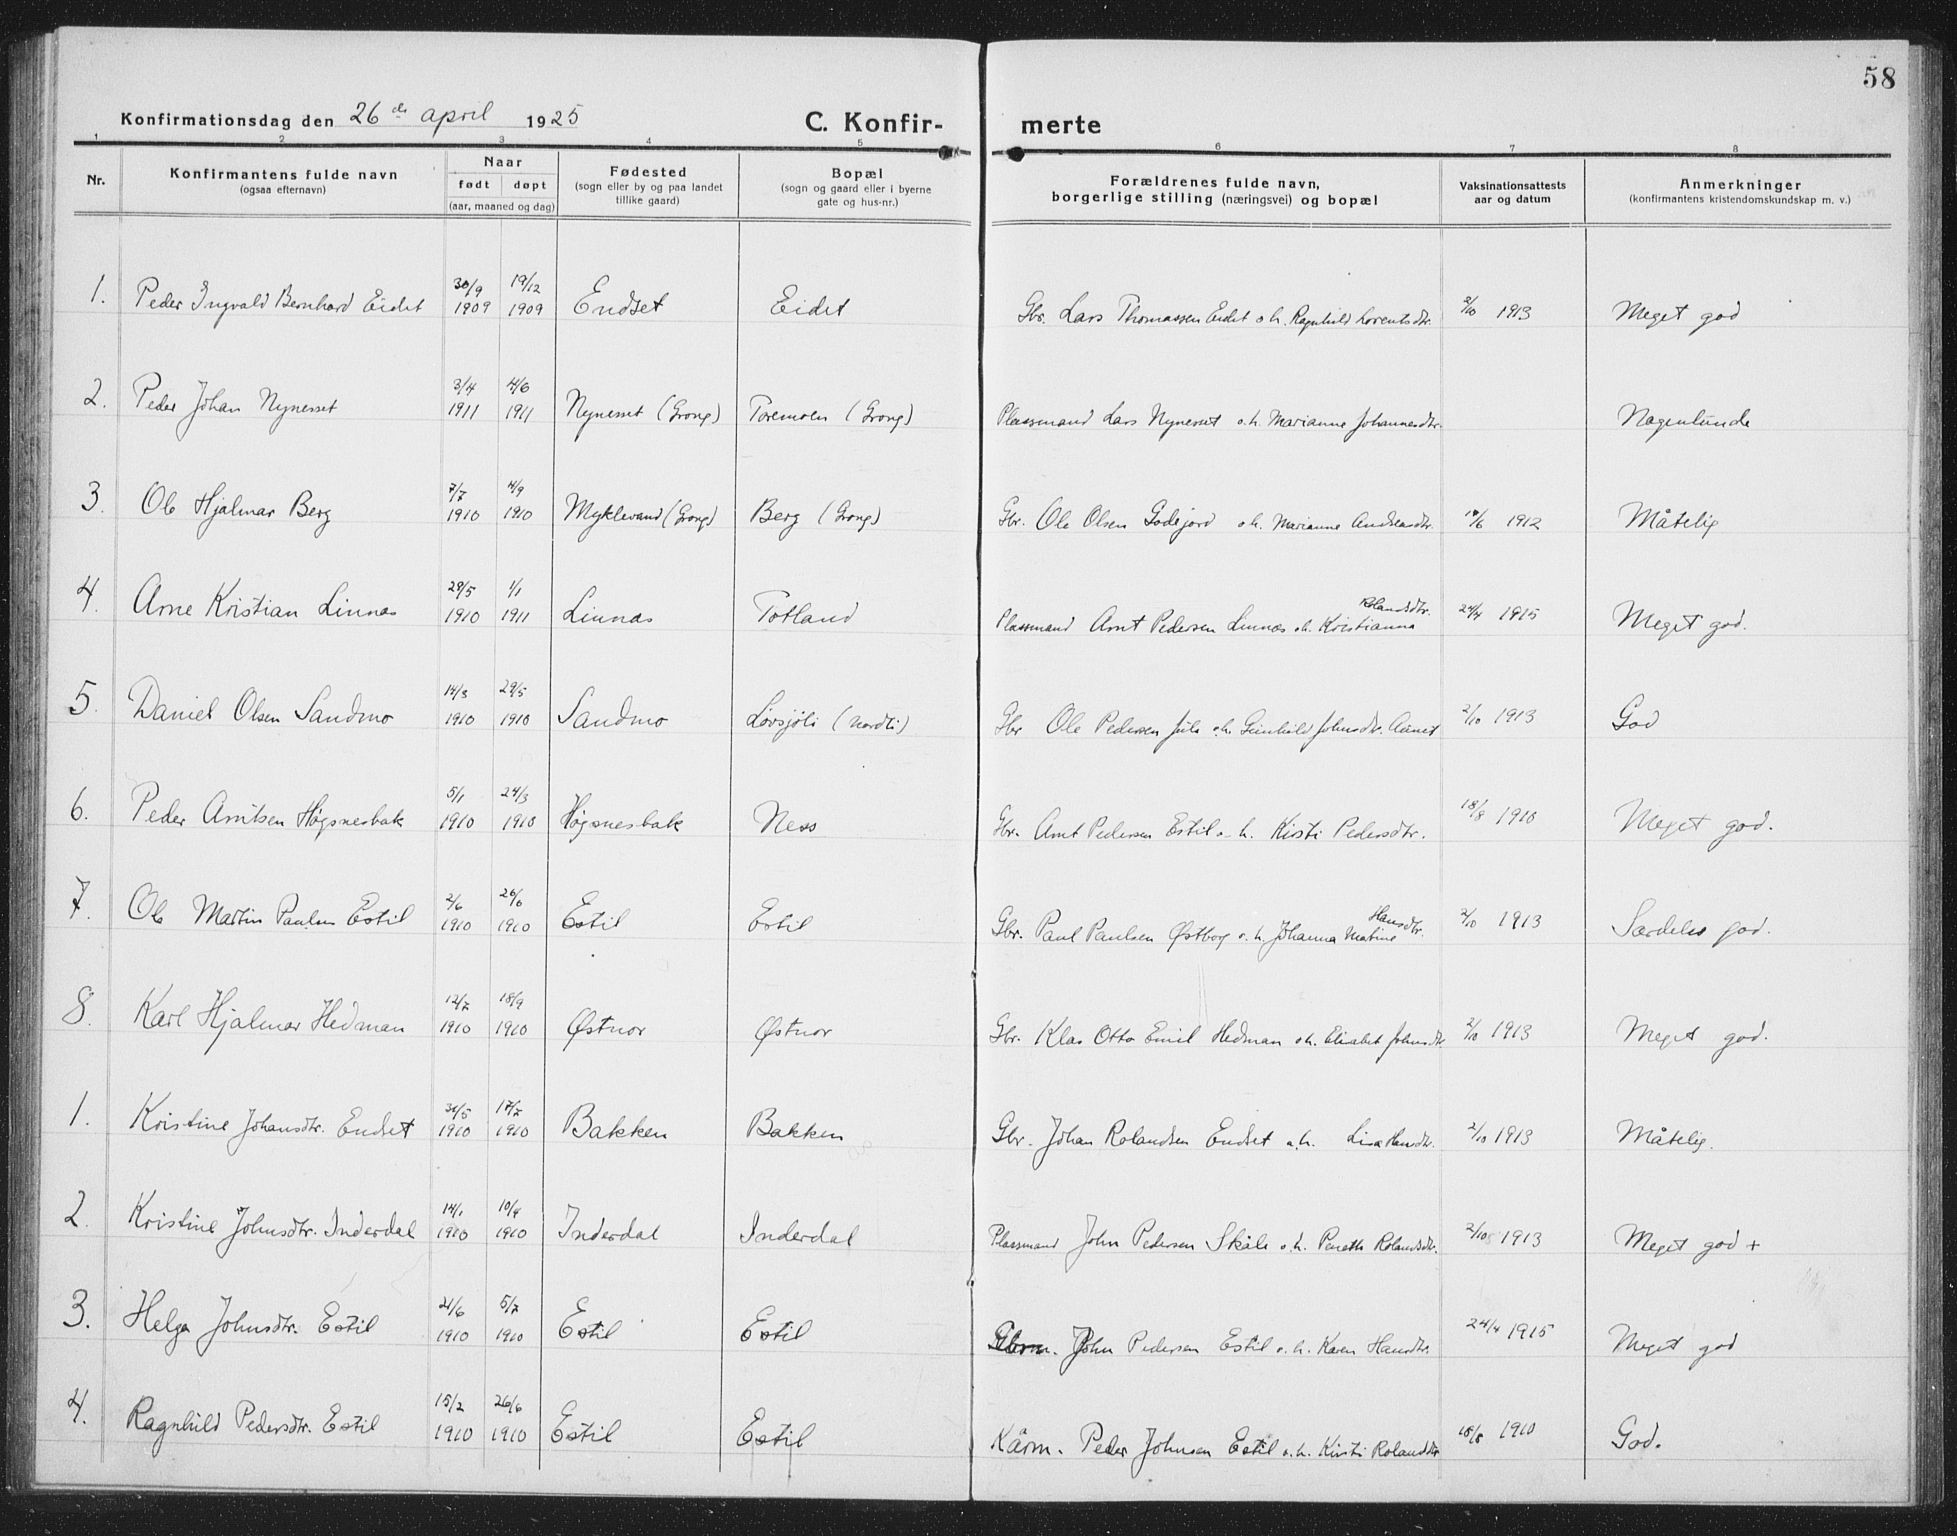 58
Konfirmationsdag den 26de april 1925 C. Konfir- merte
1 2 3 4 5 6 7 8
Nr. Konfirmantens fulde navn (ogsaa efternavn) Naar født døpt (aar, maaned og dag) Fødested (sogn eller by og paa landet tillike gaard) Bopæl (sogn og gaard eller i byerne gate og hus-nr.) Forældrenes fulde navn, borgerlige stilling (næringsvei) og bopæl Vaksinationsattests aar og datum Anmerkninger (konfirmantens kristendomskundskap m. v.)
1. Peder Ingvald Bernhard Eidet 30/9 1909 19/12 1909 Endset Eidet Gbr. Lars Thomassen Eidet o. h. Ragnhild Lorentsdtr. 2/10 1913 Meget god
2. Peder Johan Nynesset 3/4 1911 4/6 1911 Nynesset (Grong) Toremoen (Grong) Plassmand Lars Nynesset o. h. Marianne Johannesdtr. Nogenlunde
3. Ole Hjalmar Berg 7/7 1910 4/9 1910 Myklevand (Grong) Berg (Grong) Gbr. Ole Olsen Godejord o. h. Marianne Andreasdtr. /6 1912 Måtelig
4. Arne Kristian Linnæs 29/5 1910 1/1 1911 Linnæs Totland Plassmand Arnt Pedersen Linnæs o. h. Kristianna Rolandsdtr. 24/4 1915 Meget god.
5. Daniel Olsen Sandmo 14/3 1910 29/5 1910 Sandmo Lovsjøli (Nordli) Gbr Ole Pedersen o. h. Gunhild Johnsdtr. 2/10 1913 God
6. Peder Arntsen Høgsnesbak 5/1 1910 24/3 1910 Høgsnesbak Ness Gbr. Arnt Pedersen Estil o. h. Kirsti Pedersdtr. 18/8 1910 Meget god.
7. Ole Martin Paulsen Estil 2/6 1910 26/6 1910 Estil Estil Gbr. Paul Paulsen Østborg o. h. Johanna Matine Hansdtr. 2/10 1913 Særdeles god.
8. Karl Hjalmar Hedman 12/7 1910 18/9 1910 Østnor Østnor Gbr. Klas Otto Emil Hedman o. h. Elisabet Johnsdtr 2/10 1913 Meget god.
1. Kristine Johansdtr. Endset 30/5 1910 17/7 1910 Bakken Bakken Gbr. Johan Rolandsen Endset o. h. Lisa Hansdtr. 2/10 1913 Måtelig.
2. Kristine Johnsdtr. Inderdal 14/1 1910 10/4 1910 Inderdal Inderdal Plassmand John Pedersen Skåle o. h. Peneth Rolandsdtr. 2/10 1913 Meget god +
3. Helga Johnsdtr. Estil 21/6 1910 5/7 1910 Estil Estil John Pedersen Estil o. h. Karen Hansdtr. 24/4 1915 Meget god
4. Ragnhild Pedersdtr. Estil 15/2 1910 26/6 1910 Estil Estil Kårm. Peder Johnsen Estil o. h. Kirsti Rolandsdtr 18/8 1910 God.